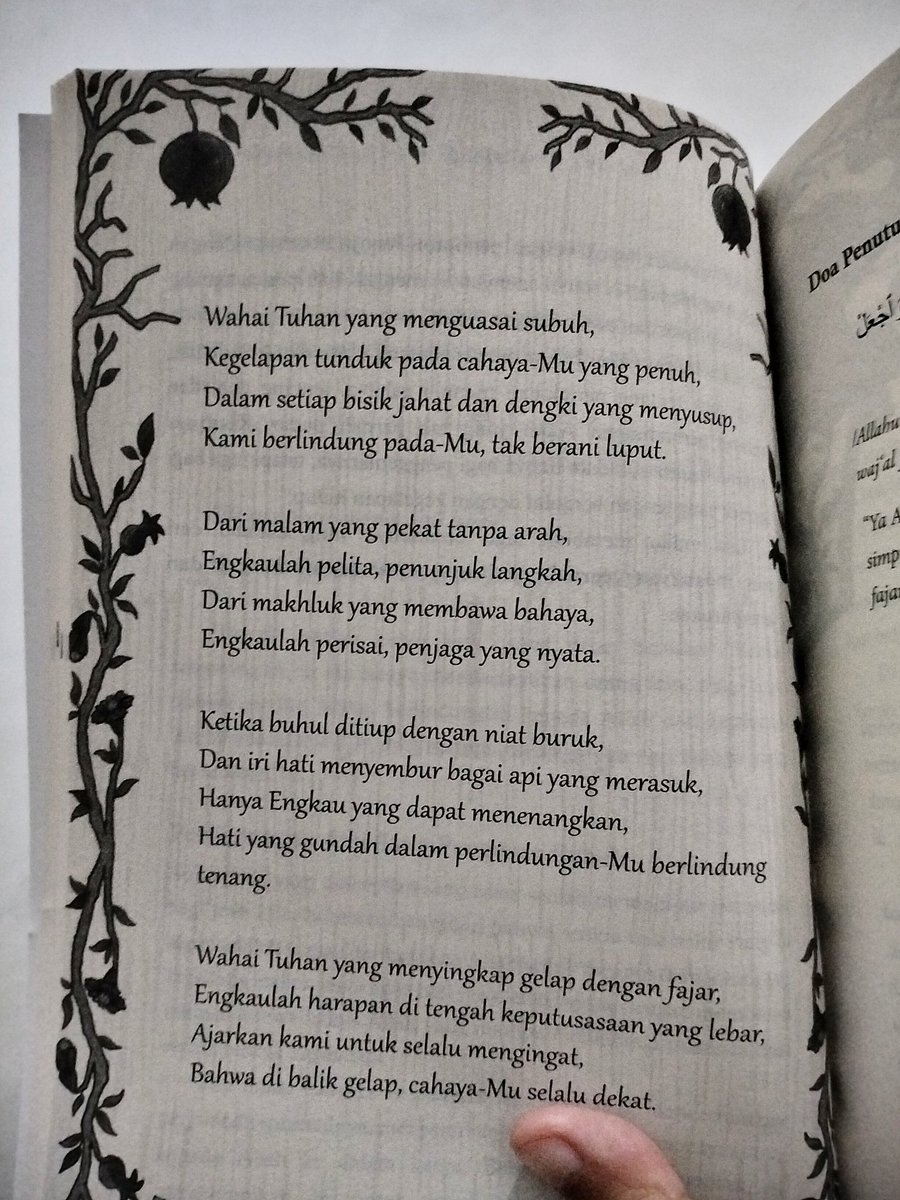 Wahai Tuhan yang menguasai subuh,
Kegelapan tunduk pada cahaya-Mu yang penuh,
Dalam setiap bisik jahat dan dengki yang menyusup,
Kami berlindung pada-Mu, tak berani luput.
Dari malam yang pekat tanpa arah,
Engkaulah pelita, penunjuk langkah,
Dari makhluk yang membawa bahaya,
Engkaulah perisai, penjaga yang nyata.
Ketika buhul ditiup dengan niat buruk,
Dan iri hati menyembur bagai api yang merasuk,
Hanya Engkau yang dapat menenangkan,
Hati yang gundah dalam perlindungan-Mu berlindung
tenang.
Wahai Tuhan yang menyingkap gelap dengan fajar,
Engkaulah harapan di tengah keputusasaan yang lebar,
Ajarkan kami untuk selalu mengingat,
Bahwa di balik gelap, cahaya-Mu selalu dekat.
Doa
"Ya